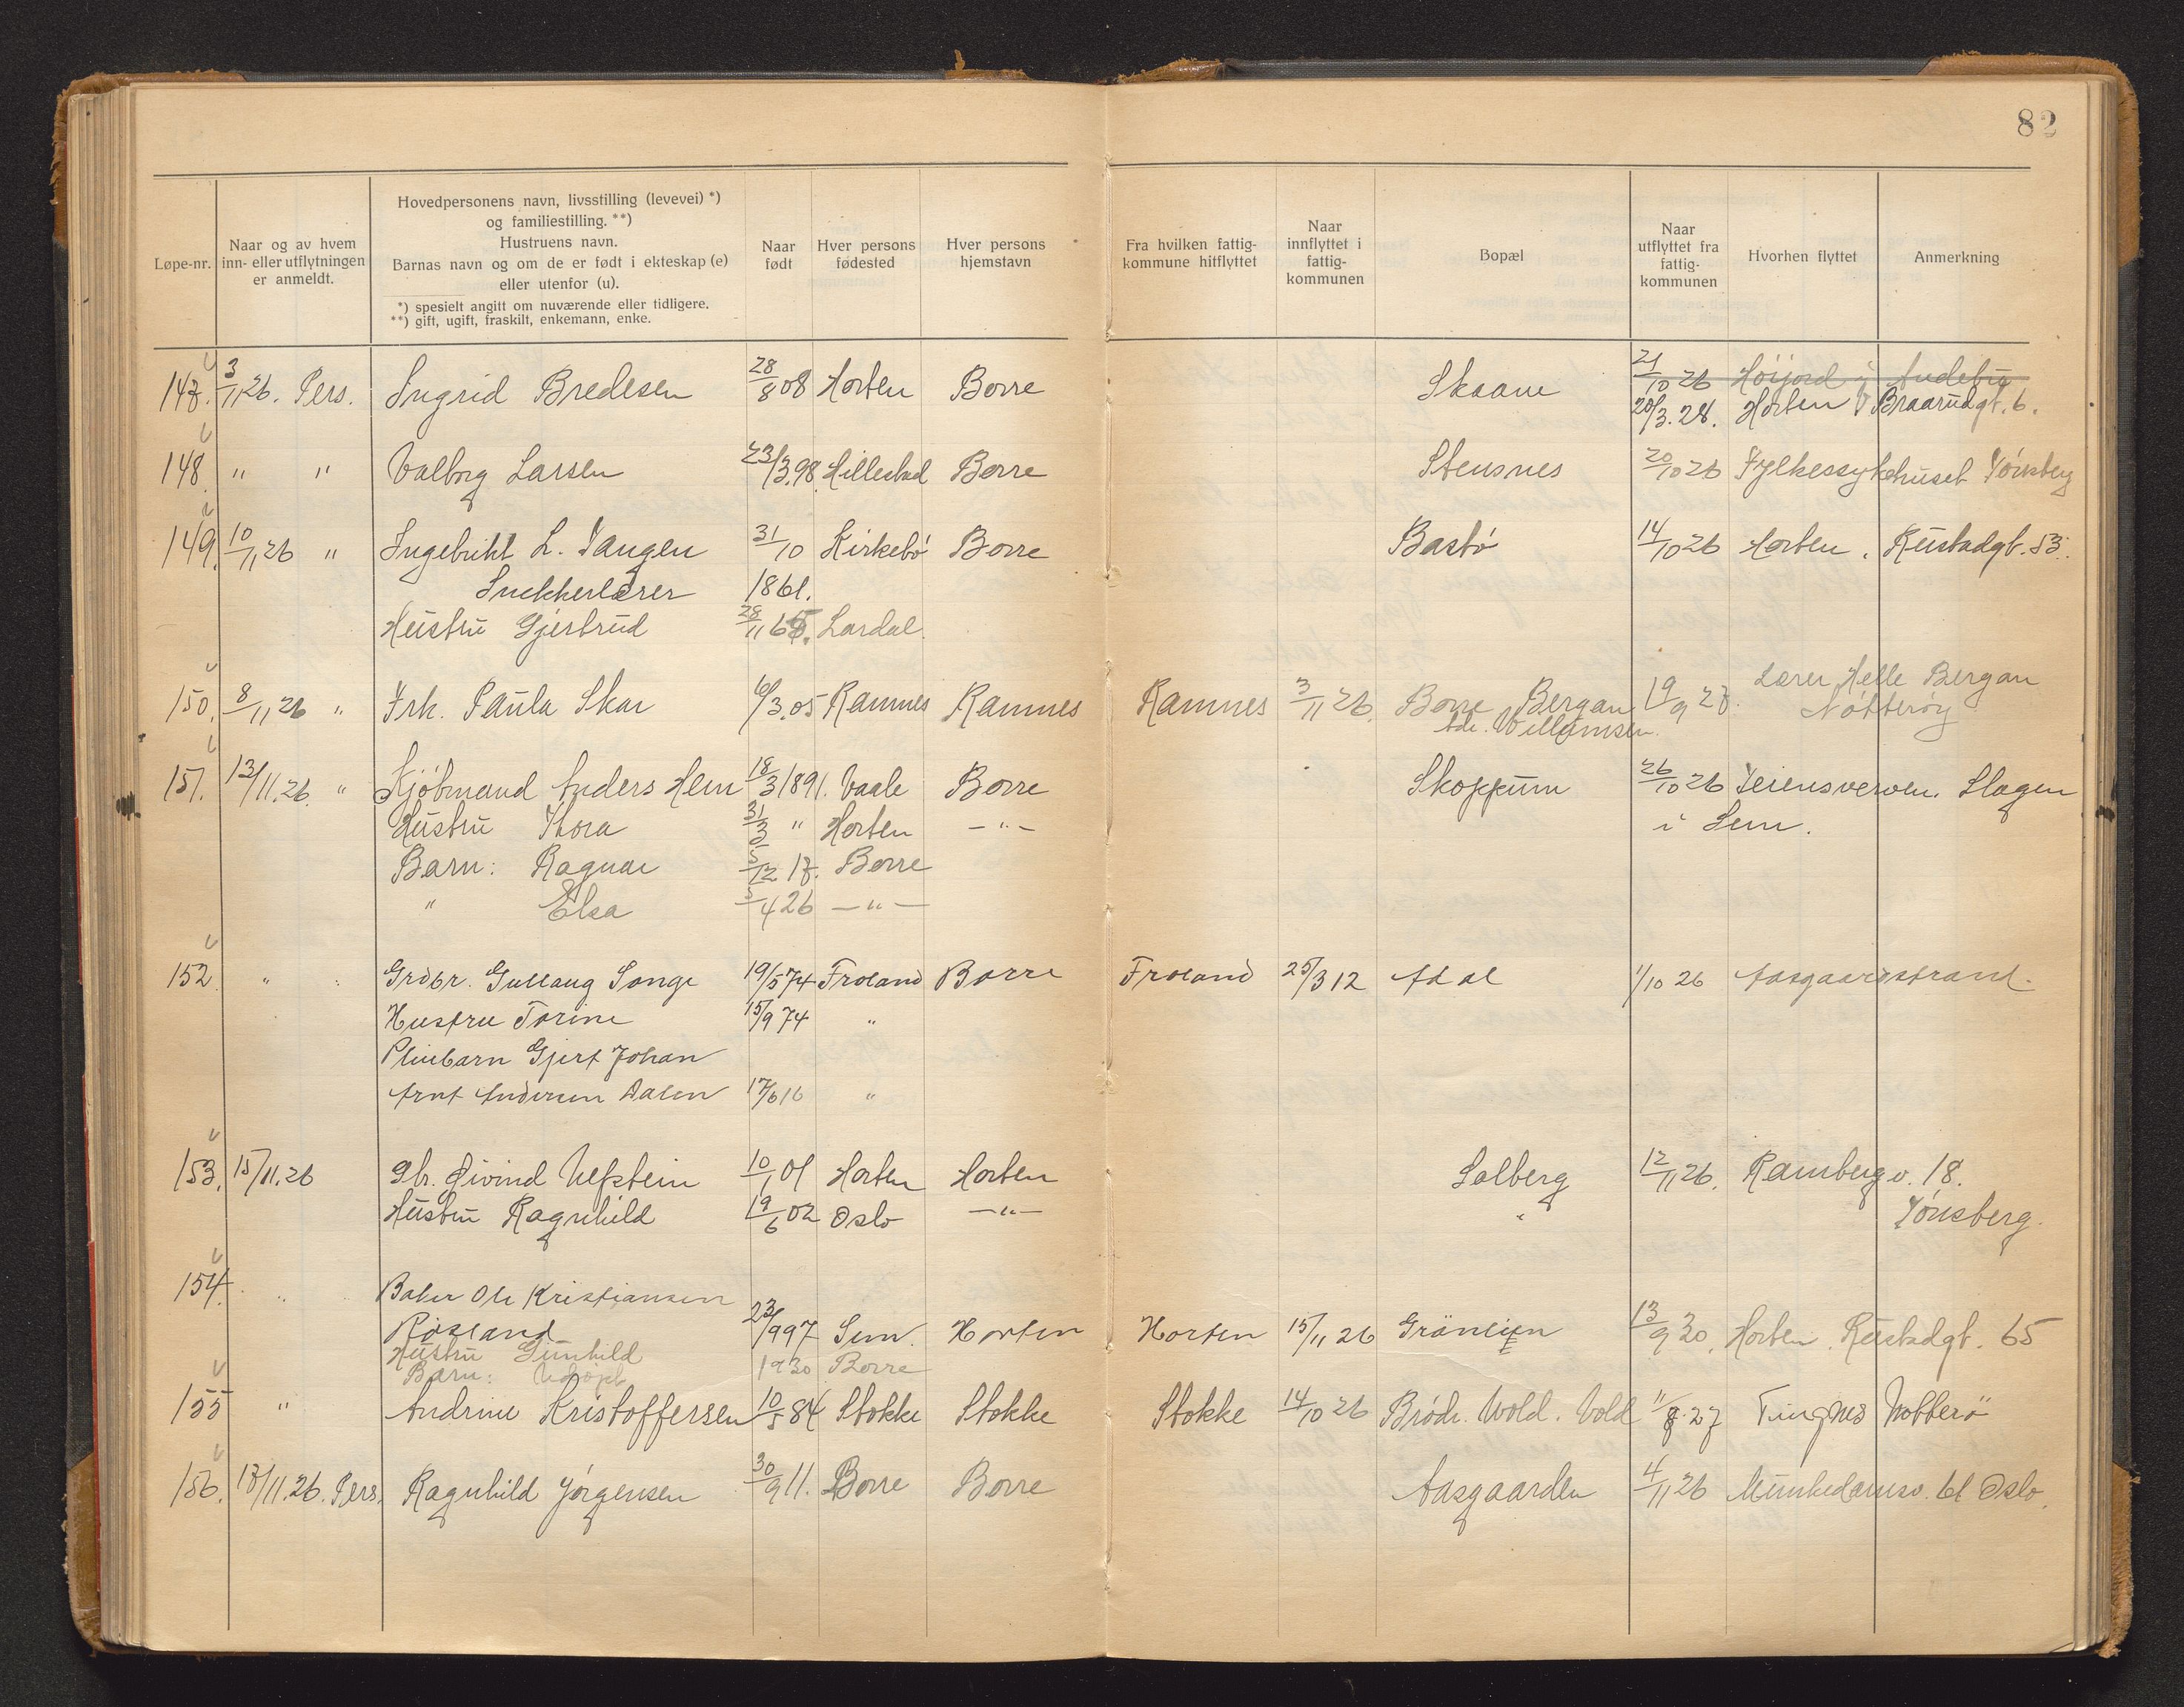 82
Løpe-nr.
Naar og av hvem
inn- eller utflytningen
er anmeldt.
Hovedpersonens navn, livsstilling (levevei) *)
og familiestilling. **)
Hustruens navn.
Barnas navn og om de er født i ekteskap (e)
eller utenfor (u).
*) spesielt angitt om nuværende eller tidligere.
**) gift, ugift, fraskilt, enkemann, enke.
Naar
født
Hver persons
fødested
Hver persons
hjemstavn
Fra hvilken fattig-
kommune hitflyttet
Naar
innflyttet i
fattig-
kommunen
Bopæl
Naar
utflyttet fra
fattig-
kommunen
Hvorhen flyttet
Anmerkning
147. 3/11 26. Pers. Ingrid Bredesen 28/8 08 Horten Borre Skaane 21/10 26 Höijord i Andebu
20/3. 28. Horten Braarudgt. 6.
148 " " Valborg Larsen 23/3.98. Hillestad Borre Stensnes 20/10 26 Fylkessykehuset Tönsberg
149. 10/11 26 " Ingebrikt L. Tangen 31/10 Kirkebö Borre Bastö 14/10 26 Horten. Rustadgt. 53.
Snekkerlærer 1861.
Hustru Gjertrud 28/11 65. Lardal
150. 8/11 26 " Frk. Paula Skar 6/3.05 Ramnes Ramnes Ramnes 3/11 26. Borre Bergan 19/9 27. Lærer Helle Bergan
adr. Willumsen. Nötteröy
151. 13/11.26. " Kjöbmand Anders Hem 18/3 1891. Vaale Borre Skoppum 26/10 26 Teiensverven. Slagen
Hustru Thora 31/3 " Horten - " - i Sem.
Barn: Ragnar 5/12 17. Borre
" Elsa 3/4 26 - " -
152. " Grdbr. Gullaug Songe 19/5 74 Froland Borre Froland 25/3 12 Adal 1/10 26 Aasgaardstrand.
Hustru Torine 15/9 74 "
Pleiebarn Gjert Johan
Arnt Andersen Dalen 17/6 16 "
153. 15/11.26 Øivind Ulfstein 10/1 01 Horten Horten Solberg 12/11 26. Rambergv. 18.
Hustru Ragnhild 19/6 02 Oslo - " - " Tönsberg.
154. " Baker Ole Kristiansen
Røsland 23/9 97 Sem. Horten Horten 15/11 26 Grönlien 13/9 30. Horten. Rustadgt. 65
Hustru Gunhild
Barn: 1930 Borre
155 " Andrine Kristoffersen 10/5 84 Stokke Stokke Stokke 14/10 26 Brödr. Wold. Vold 11/8.27 Tingnes Nötterö
156. 17/11.26. Pers. Ragnhild Jörgensen 30/9 11. Borre Borre Aasgaarden 4/11 26 Munkedamsv. 61 Oslo.